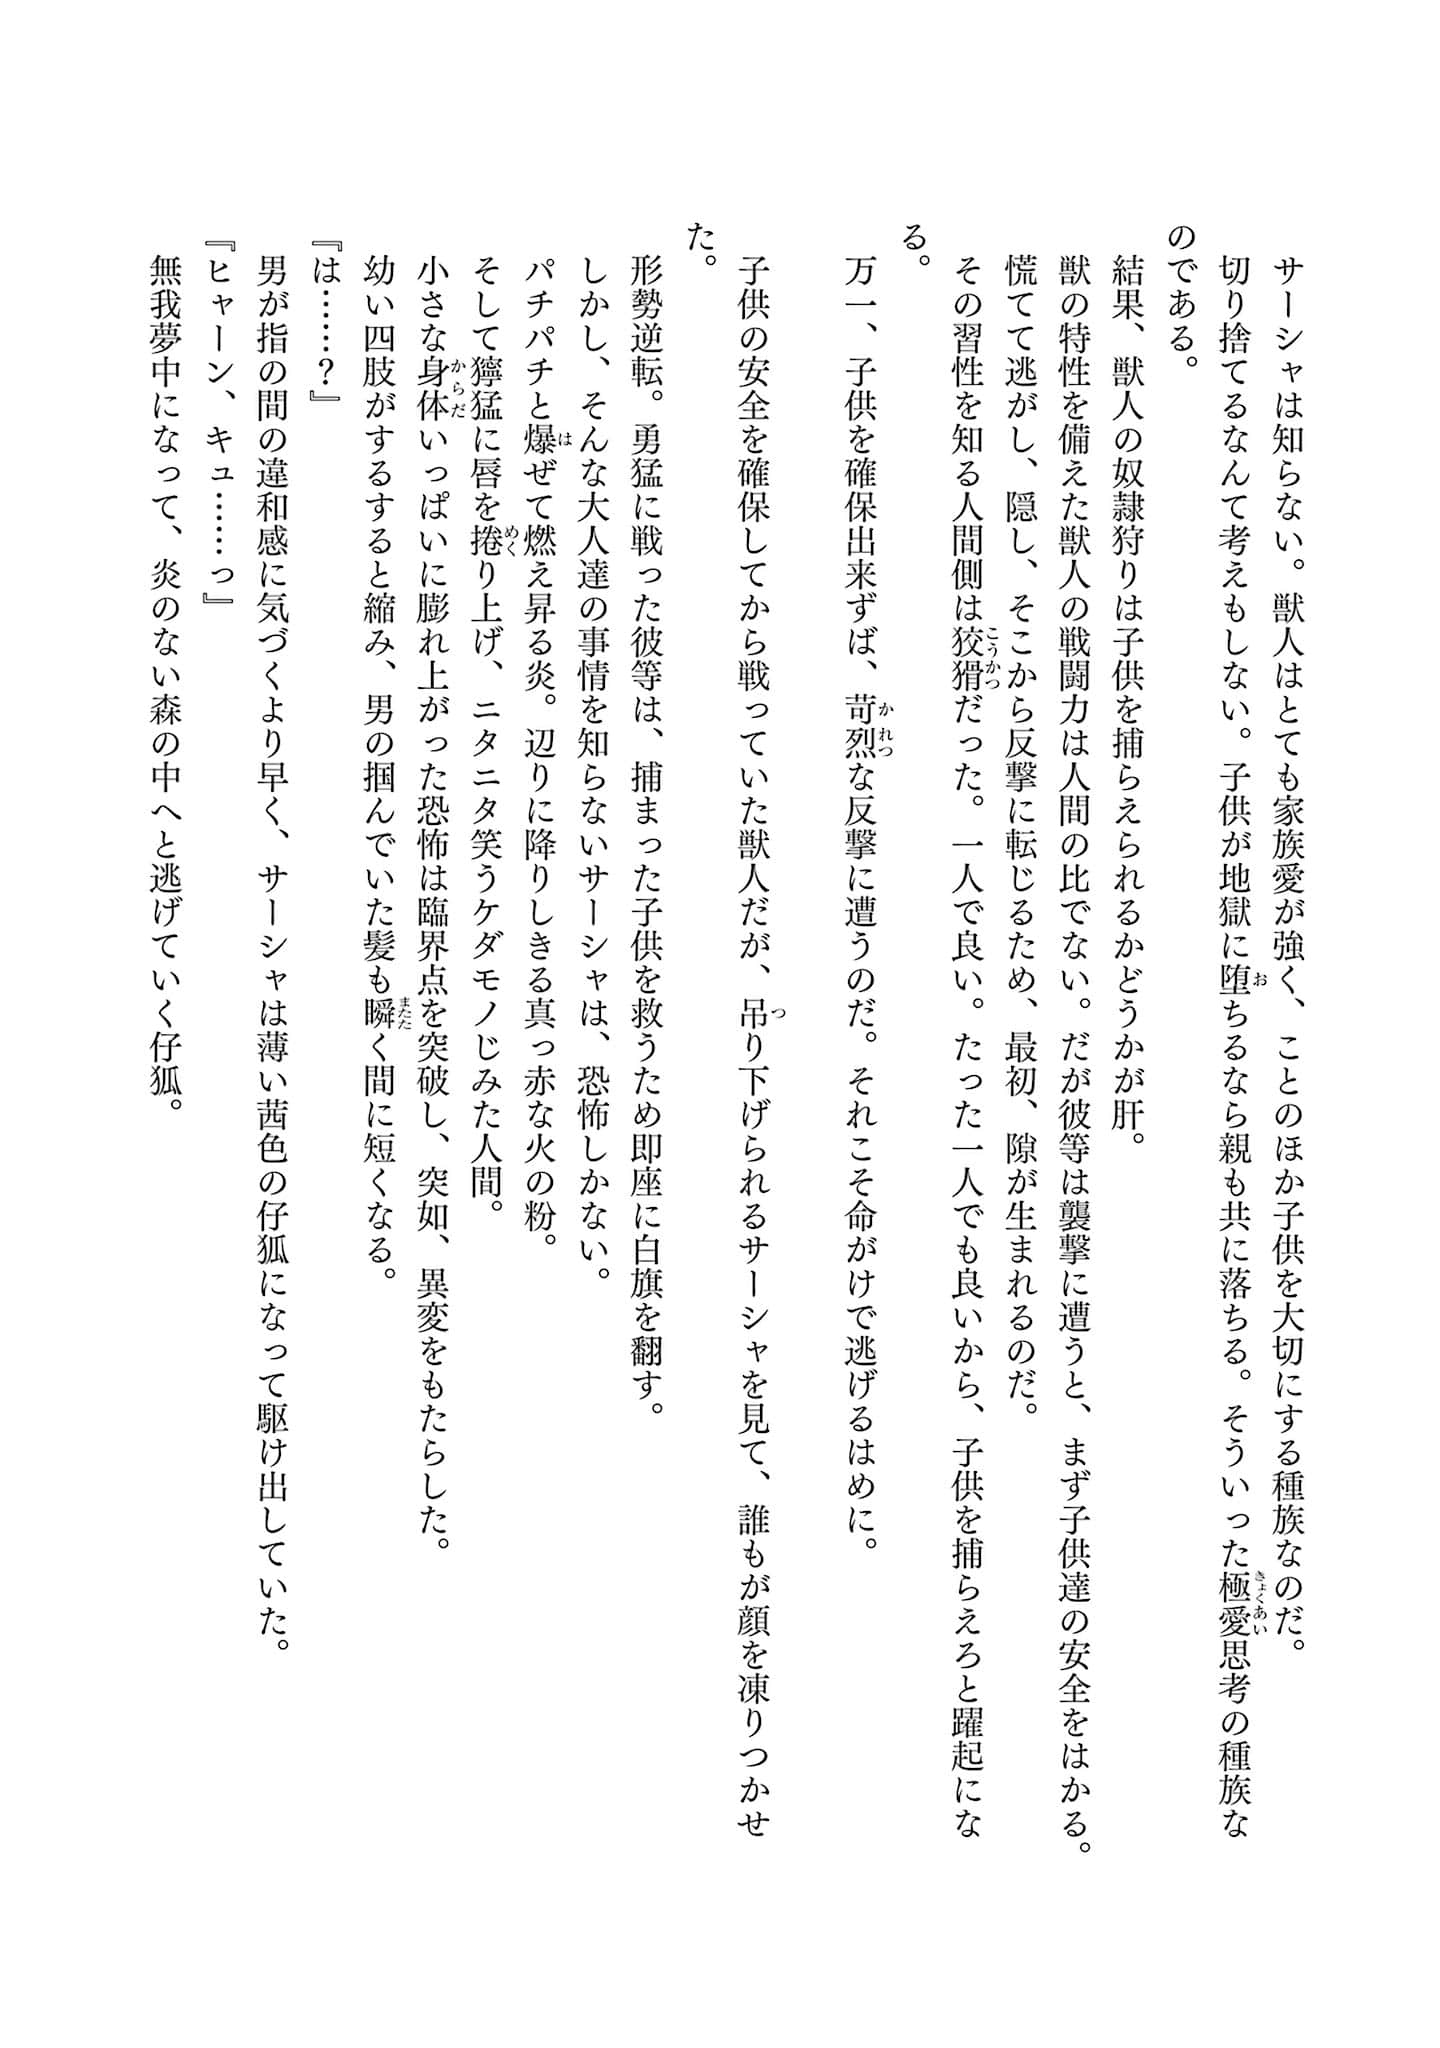 サーシャは知らない。獣人はとても家族愛が強く、ことのほか子供を大切にする種族なのだ。
切り捨てるなんて考えもしない。子供が地獄に堕ちるなら親も共に落ちる。そういった極愛思考の種族な
のである。
結果、獣人の奴隷狩りは子供を捕らえられるかどうかが肝。
獣の特性を備えた獣人の戦闘力は人間の比でない。だが彼等は襲撃に遭うと、まず子供達の安全をはかる。
慌てて逃がし、隠し、そこから反撃に転じるため、最初、隙が生まれるのだ。
その習性を知る人間側は狡猾だった。一人で良い。たった一人でも良いから、子供を捕らえろと躍起にな
る。
万一、子供を確保出来ずば、苛烈な反撃に遭うのだ。それこそ命がけで逃げるはめに。
子供の安全を確保してから戦っていた獣人だが、吊り下げられるサーシャを見て、誰もが顔を凍りつかせ
た。
形勢逆転。勇猛に戦った彼等は、捕まった子供を救うため即座に白旗を翻す。
しかし、そんな大人達の事情を知らないサーシャは、恐怖しかない。
パチパチと爆ぜて燃え昇る炎。辺りに降りしきる真っ赤な火の粉。
そして獰猛に唇を捲り上げ、ニタニタ笑うケダモノじみた人間。
小さな身体いっぱいに膨れ上がった恐怖は臨界点を突破し、突如、異変をもたらした。
幼い四肢がするすると縮み、男の掴んでいた髪も瞬く間に短くなる。
『は……？』
男が指の間の違和感に気づくより早く、サーシャは薄い茜色の仔狐になって駆け出していた。
『ヒャーン、キュ……っ』
無我夢中になって、炎のない森の中へと逃げていく仔狐。